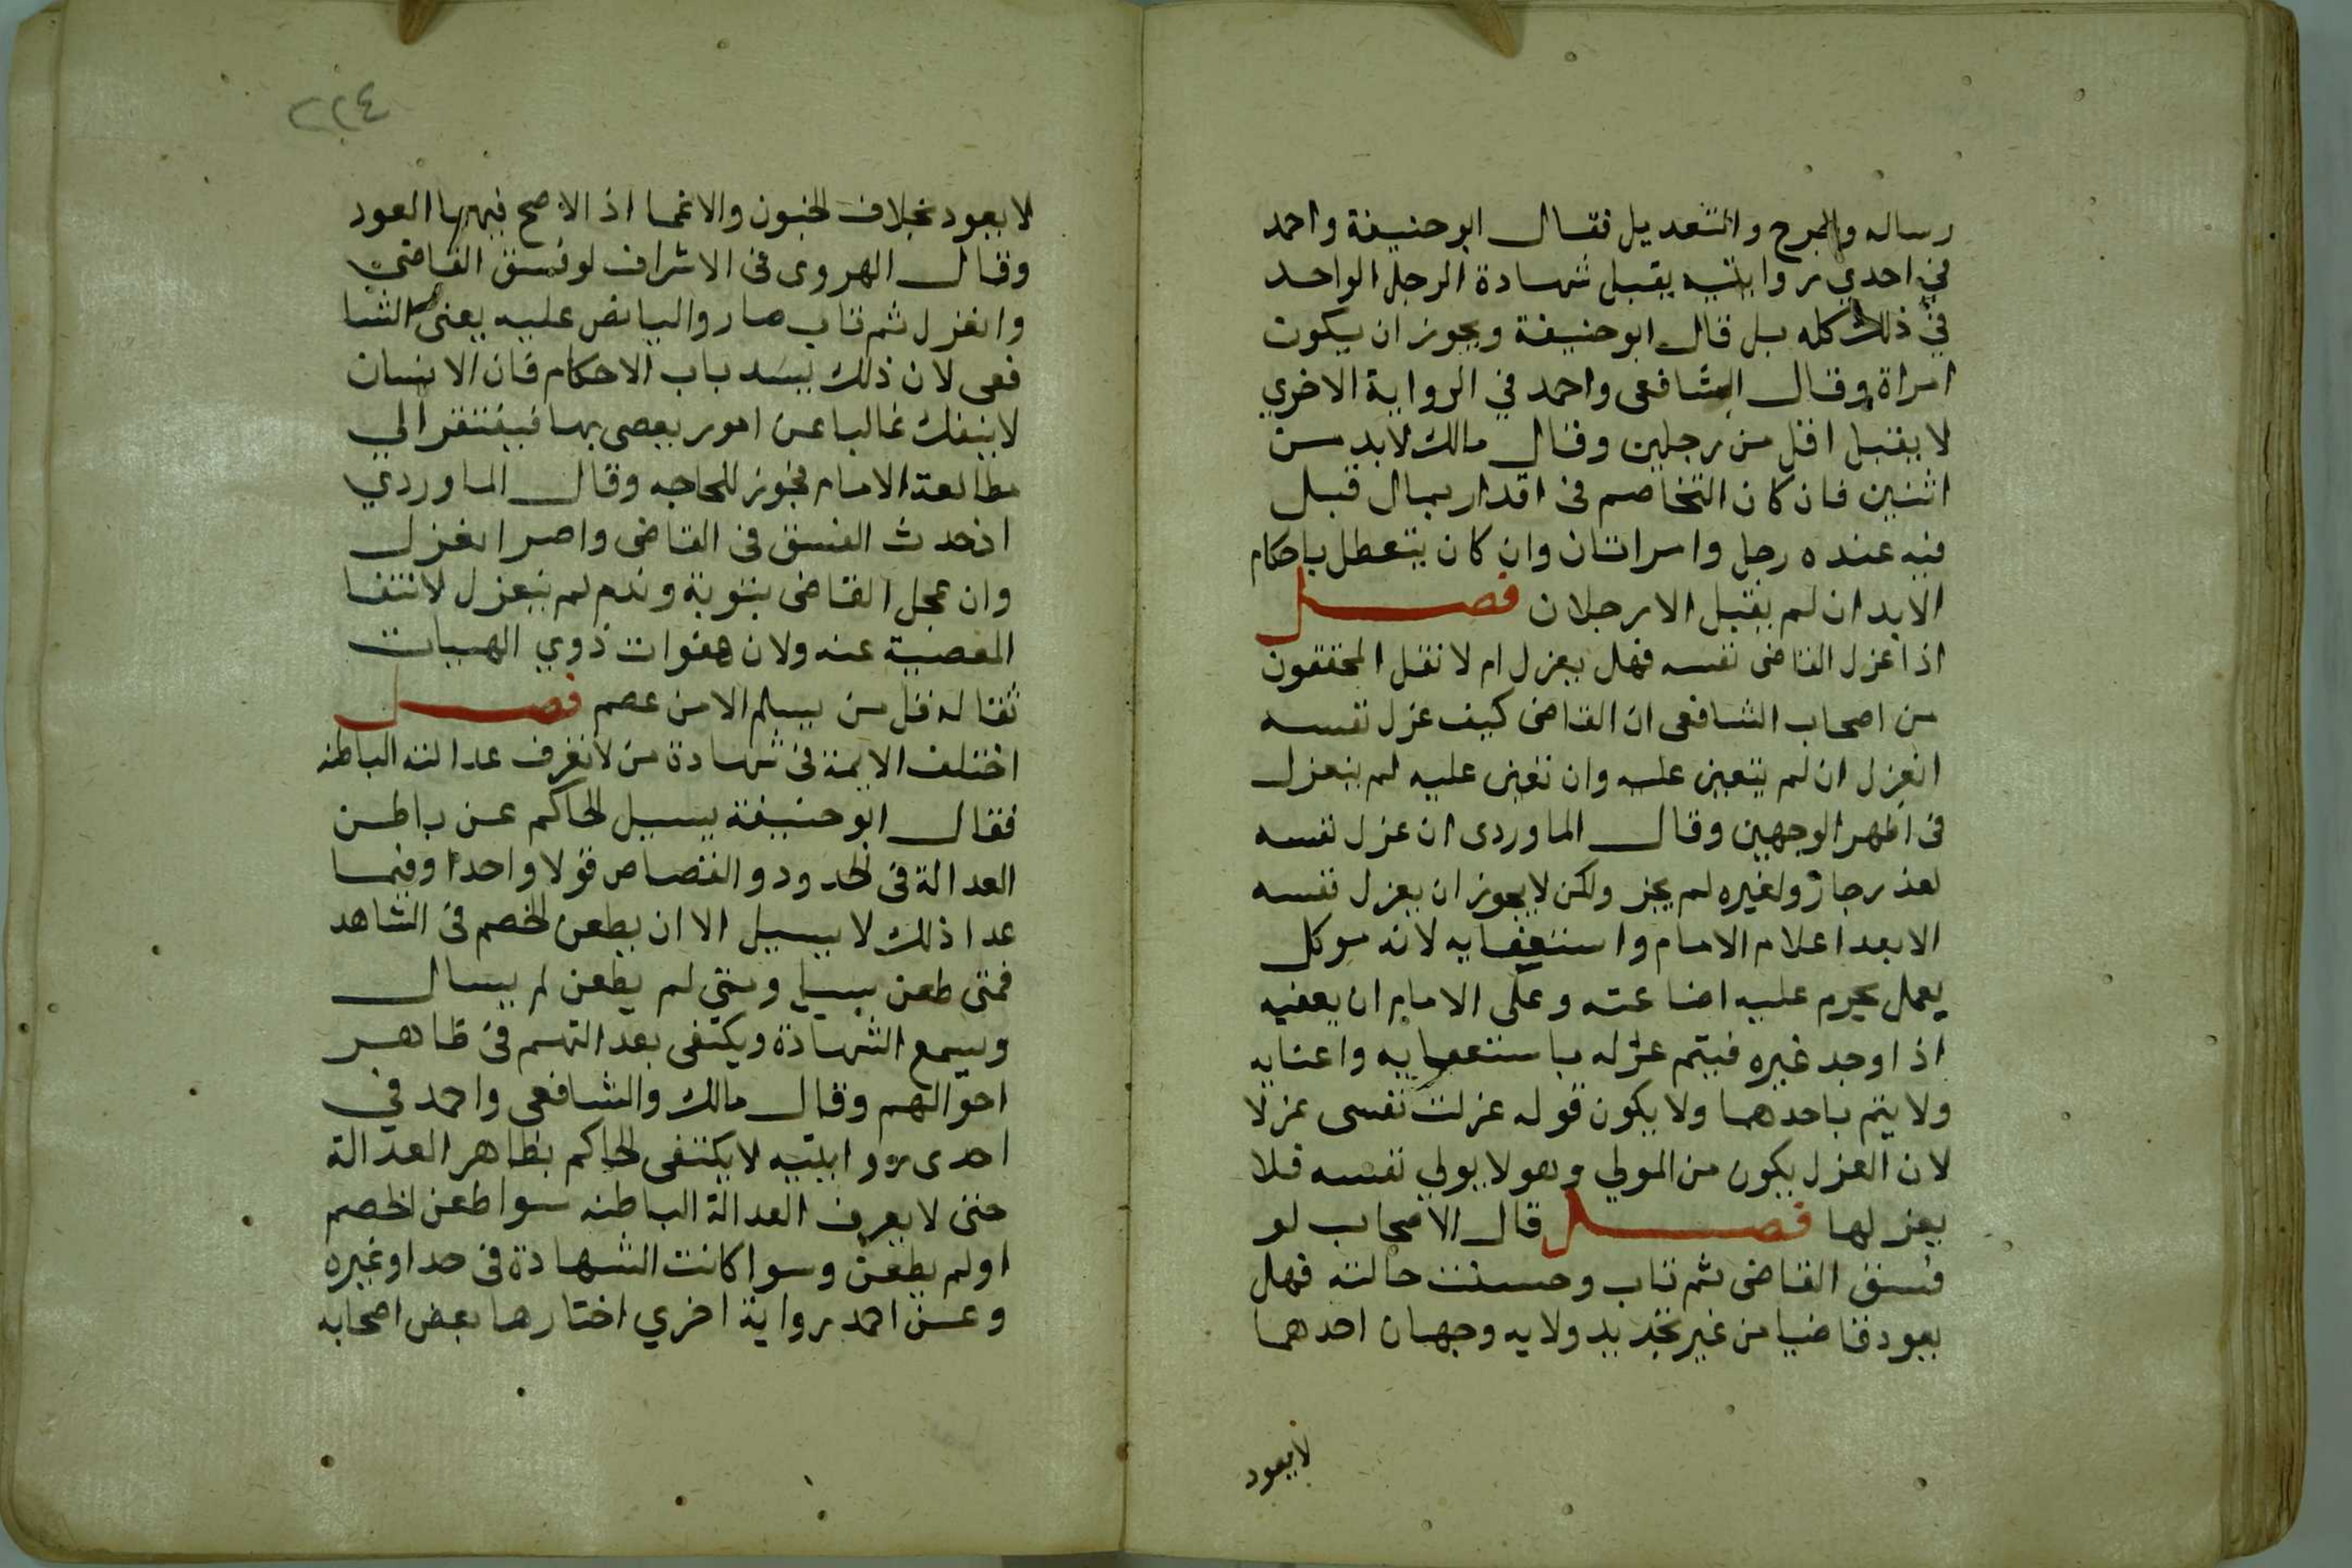 رساله والجرح والتعديل فقال ابو حنيفة واحمد
في احدي روايتيه يقبل شهادة الرجل الواحد
في ذلك كله بل قال ابو حنيفة ويجوز ان يكون
امراة وقال الشافعى واحمد في الرواية الاخري
لا يقبل اقل من رجلين وقال مالك لابد من
اثنين فان كان التخاصم فى اقدار بمال قبل
فيه عنده رجل وامراتان وان كان يتعطل باحكام
الابدان لم يقبل الا رجلان فصل
اذا عزل القاضى نفسه فهل يعزل ام لا نقل المحققون
من اصحاب الشافعى ان القاضى كيف عزل نفسه
انعزل ان لم يتعين عليه وان تعين عليه لم ينعزل
فى اظهر الوجهين وقال الماوردى ان عزل نفسه
لعذر جاز ولغيره لم يجز ولكن لا يجوز ان يعزل نفسه
الا بعد اعلام الامام واستعفايه لانه موكل
يعمل يحرم عليه اضاعته وعلى الامام ان يعفيه
اذا وجد غيره فيتم عزله باستعفايه واعنايه
ولا يتم باحدهما ولا يكون قوله عزلت نفسى عزلا
لان العزل يكون من المولي وهو لا يولي نفسه فلا
يعزلها فصل قال الاصحاب لو
فسق القاضى ثم تاب وحسنت حالته فهل
يعود قاضيا من غير تجديد ولايه وجهان احدهما
لا يعود
٢٢٤
لا يعود بخلاف الجنون والاغما اذ الاصح فيهما العود
وقال الهروى فى الاشراف لو فسق القاضي
وانعزل ثم تاب صار واليا نص عليه يعنى الشا
فعى لان ذلك يسد باب الاحكام فان الانسان
لا ينفك غالبا عن امور يعصى بها فيفتقر الي
مطالعة الامام فجوز للحاجه وقال الماوردي
اذ حدث الفسق فى القاضى واصر انعزل
وان عجل القاضى بتوبة وندم لم ينعزل لانتفا
المعصية عنه ولان هفوات ذوي الهيات
ثقاله فقل من يسلم الا من عصم فصل
اختلف الايمة فى شهادة من لا تعرف عدالته الباطنه
فقال ابو حنيفة يسيل الحاكم عن باطن
العدالة فى الحدود والقصاص قولا واحدا وفيما
عدا ذلك لا يسيل الا ان يطعن الخصم فى الشاهد
فمتى طعن يسيل ومتي لم يطعن لم يسال
ويسمع الشهادة ويكتفى بعد التهم فى ظاهر
احوالهم وقال مالك والشافعى واحمد في
احدى روايتيه لا يكتفى الحاكم بظاهر العدالة
حتى لا يعرف العدالة الباطنه سوا طعن الخصم
اولم يطعن وسوا كانت الشهادة فى حد او غيره
وعن احمد رواية اخري اختارها بعض اصحابه